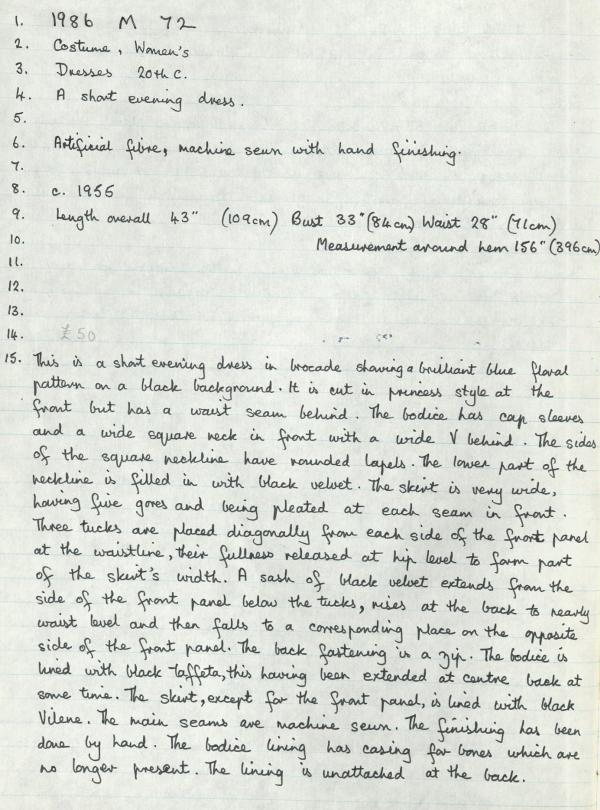 1. 1986 M 72
2. Costume, Women's
3. Dresses 20th C.
4. A short evening dress.
5.
6. Artificial fibre, machine sewn with hand finishing.
7.
8. c. 1955
9. Length overall 43" (109cm) Bust 33" (84cm) Waist 28" (71cm)
10. Measurement around hem 156" (396cm)
11.
12.
13.
14. £50
15. This is a short evening dress in brocade showing a brilliant blue floral
pattern on a black background. It is cut in princess style at the
front but has a waist seam behind. The bodice has cap sleeves
and a wide square neck in front with a wide V behind. The sides
of the square neckline have rounded lapels. The lower part of the
neckline is filled in with black velvet. The skirt is very wide,
having five gores and being pleated at each seam in front.
Three tucks are placed diagonally from each side of the front panel
at the waistline, their fullness released at hip level to form part
of the skirt's width. A sash of black velvet extends from the
side of the front panel below the tucks, rises at the back to nearly
waist level and then falls to a corresponding place on the opposite
side of the front panel. The back fastening is a zip. The bodice is
lined with black taffeta, this having been extended at centre back at
some time. The skirt, except for the front panel, is lined with black
Vilene. The main seams are machine sewn. The finishing has been
done by hand. The bodice lining has casing for bones which are
no longer present. The lining is unattached at the back.